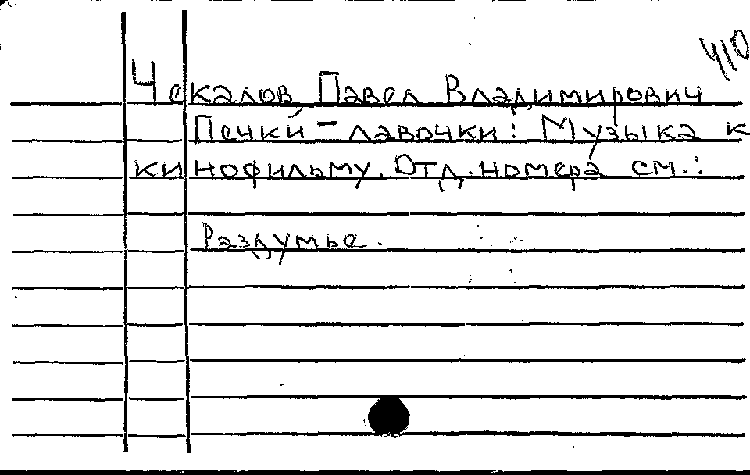 410
Чекалов Павел Владимирович
Печки-лавочки: Музыка к
кинофильму. Отд. номера см.:
Раздумье.